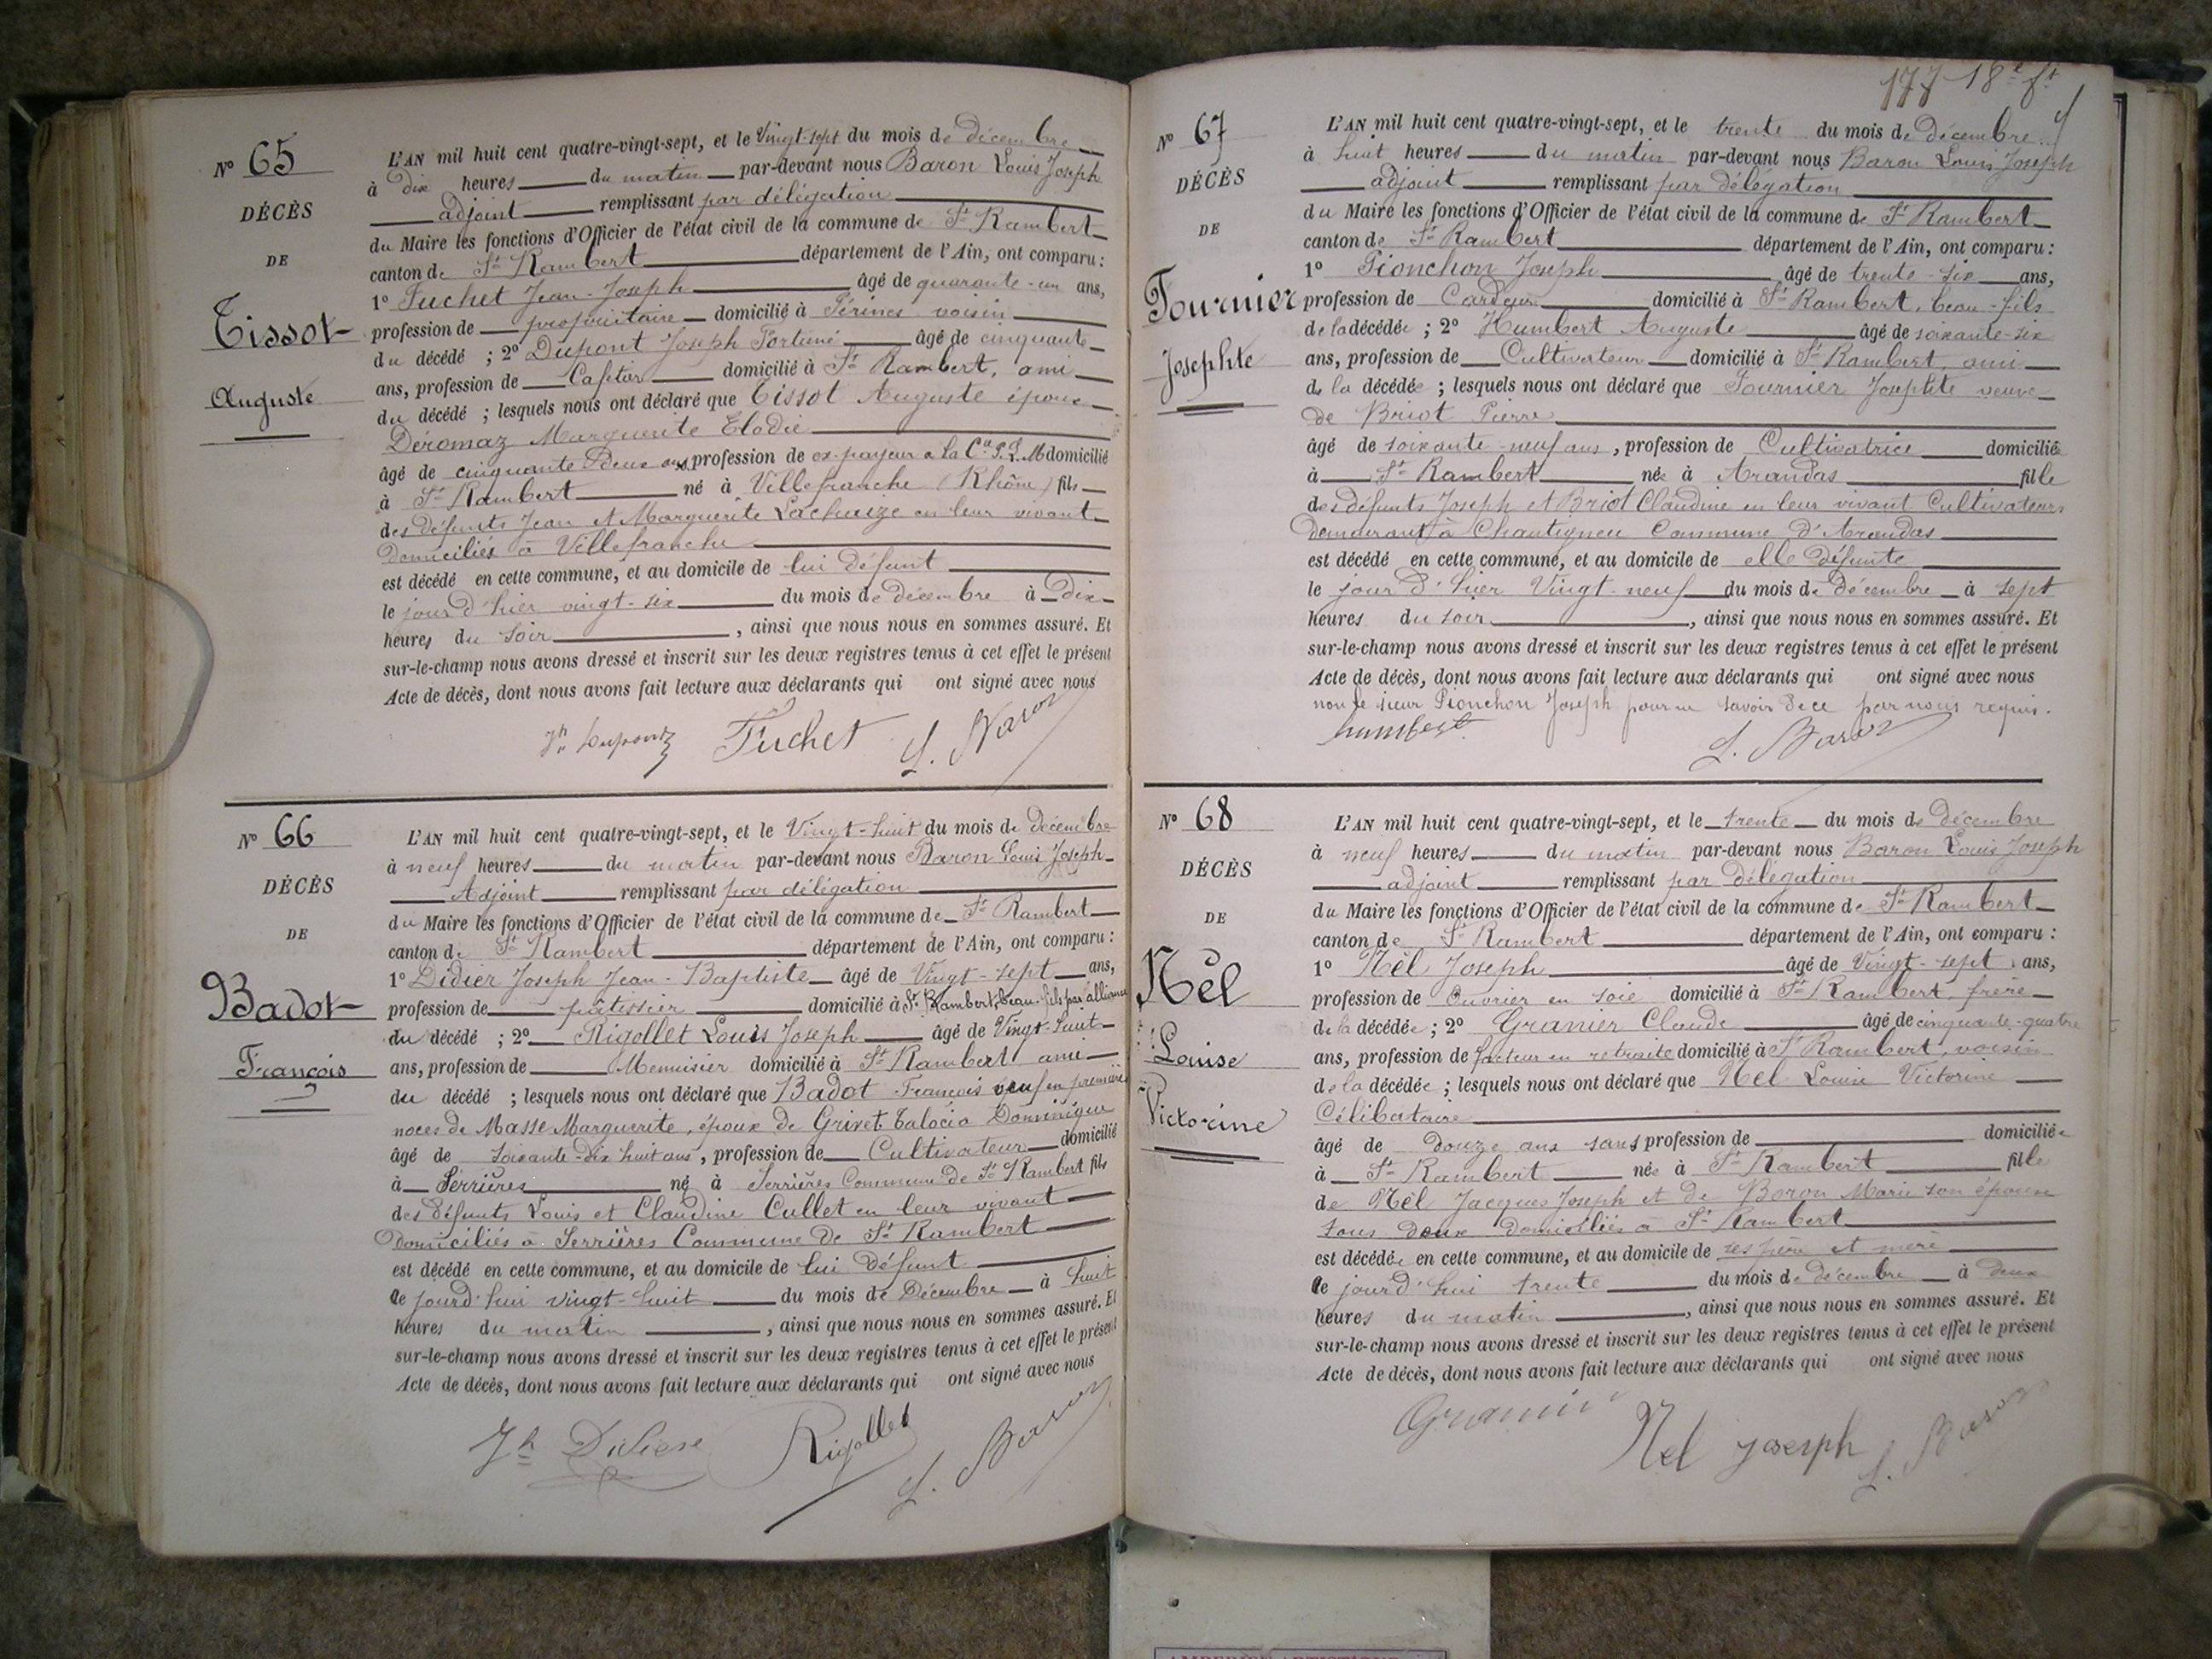 No 65
DÉCÈS
DE
Tissot
Auguste
L'AN mil huit cent quatre-vingt-sept, et le Vingt-sept du mois de décembre
à dix heures du matin par-devant nous Baron Louis Joseph
adjoint remplissant par délégation
du Maire les fonctions d'Officier de l'état civil de la commune de St Rambert
canton de St Rambert département de l'Ain, ont comparu :
1o Fuchet Jean-Joseph âgé de quarante-un ans,
profession de propriétaire domicilié à Pérines voisin
du décédé ; 2o Dupont Joseph Fortuné âgé de cinquante
ans, profession de domicilié à St Rambert, ami
du décédé ; lesquels nous ont déclaré que Tissot Auguste époux
Déromaz Marguerite Elodie
âgé de cinquante deux ans profession de ex-payeur a la Cie P.L.M domicilié
à St Rambert né à Villefranche (Rhône) fils
des défunts Jean et Marguerite Lachaize en leur vivant
domiciliés à Villefranche
est décédé en cette commune, et au domicile de lui défunt
le jour d'hier vingt-six du mois de décembre à Dix
heures du soir, ainsi que nous nous en sommes assuré. Et
sur-le-champ nous avons dressé et inscrit sur les deux registres tenus à cet effet le présent
Acte de décès, dont nous avons fait lecture aux déclarants qui ont signé avec nous
Jh Dupont Fuchet L. Baron
No 66
DÉCÈS
DE
Badot
François
L'AN mil huit cent quatre-vingt-sept, et le Vingt-huit du mois de décembre
à neuf heures du matin par-devant nous Baron Louis Joseph
Adjoint remplissant par délégation
du Maire les fonctions d'Officier de l'état civil de la commune de St Rambert
canton de St Rambert département de l'Ain, ont comparu :
1o Didier Joseph Jean-Baptiste âgé de Vingt-sept ans,
profession de pâtissier domicilié à St Rambert, beau-fils par alliance
du décédé ; 2o Rigollet Louis Joseph âgé de Vingt-huit
ans, profession de Menuisier domicilié à St Rambert ami
du décédé ; lesquels nous ont déclaré que Badot François veuf en première
noces de Masse Marguerite, époux de Grivet Talocia Dominique
âgé de soixante-dix huit ans, profession de Cultivateur domicilié
à Serrières né à Serrières Commune de St Rambert fils
des défunts Louis et Claudine Cullet en leur vivant
domiciliés à Serrières Commune de St Rambert
est décédé en cette commune, et au domicile de lui Défunt
le jourd'hui vingt-huit du mois de Décembre à huit
heures du matin, ainsi que nous nous en sommes assuré. Et
sur-le-champ nous avons dressé et inscrit sur les deux registres tenus à cet effet le présent
Acte de décès, dont nous avons fait lecture aux déclarants qui ont signé avec nous
Jh Didier Rigollet L. Baron
177 18e ft
No 67
DÉCÈS
DE
Fournier
Josephte
L'AN mil huit cent quatre-vingt-sept, et le trente du mois de décembre
à huit heures du matin par-devant nous Baron Louis Joseph
adjoint remplissant par délégation
du Maire les fonctions d'Officier de l'état civil de la commune de St Rambert
canton de St Rambert département de l'Ain, ont comparu :
1o Pionchon Joseph âgé de trente-six ans,
profession de Cardeur domicilié à St Rambert, beau-fils
de la décédée ; 2o Humbert Auguste âgé de soixante-six
ans, profession de Cultivateur domicilié à St Rambert, ami
de la décédée ; lesquels nous ont déclaré que Fournier Josephte veuve
de Briot Pierre
âgé de soixante-neuf ans, profession de Cultivatrice domiciliée
à St Rambert née à Arandas fille
des défunts Joseph et Briot Claudine en leur vivant Cultivateurs
demeurant à Chantigneu Commune d'Arandas
est décédé en cette commune, et au domicile de elle défunte
le jour d'hier Vingt-neuf du mois de Décembre à sept
heures du soir, ainsi que nous nous en sommes assuré. Et
sur-le-champ nous avons dressé et inscrit sur les deux registres tenus à cet effet le présent
Acte de décès, dont nous avons fait lecture aux déclarants qui ont signé avec nous
non le sieur Pionchon Joseph pour ne savoir de ce par nous requis.
humbert L. Baron
No 68
DÉCÈS
DE
Nèl
Louise
Victorine
L'AN mil huit cent quatre-vingt-sept, et le trente du mois de décembre
à neuf heures du matin par-devant nous Baron Louis Joseph
adjoint remplissant par délégation
du Maire les fonctions d'Officier de l'état civil de la commune de St Rambert
canton de St Rambert département de l'Ain, ont comparu :
1o Nèl Joseph âgé de Vingt-sept ans,
profession de Ouvrier en soie domicilié à St Rambert, frère
de la décédée ; 2o Granier Claude âgé de cinquante-quatre
ans, profession de facteur en retraite domicilié à St Rambert, voisin
de la décédée ; lesquels nous ont déclaré que Nèl Louise Victorine
Célibataire
âgé de douze ans sans profession de domiciliée
à St Rambert née à St Rambert fille
de Nèl Jacques Joseph et de Boron Marie son épouse
tous deux domiciliés à St Rambert
est décédée en cette commune, et au domicile de ses père et mère
le jourd'hui trente du mois de décembre à deux
heures du matin, ainsi que nous nous en sommes assuré. Et
sur-le-champ nous avons dressé et inscrit sur les deux registres tenus à cet effet le présent
Acte de décès, dont nous avons fait lecture aux déclarants qui ont signé avec nous
Granier Nel joseph L. Baron